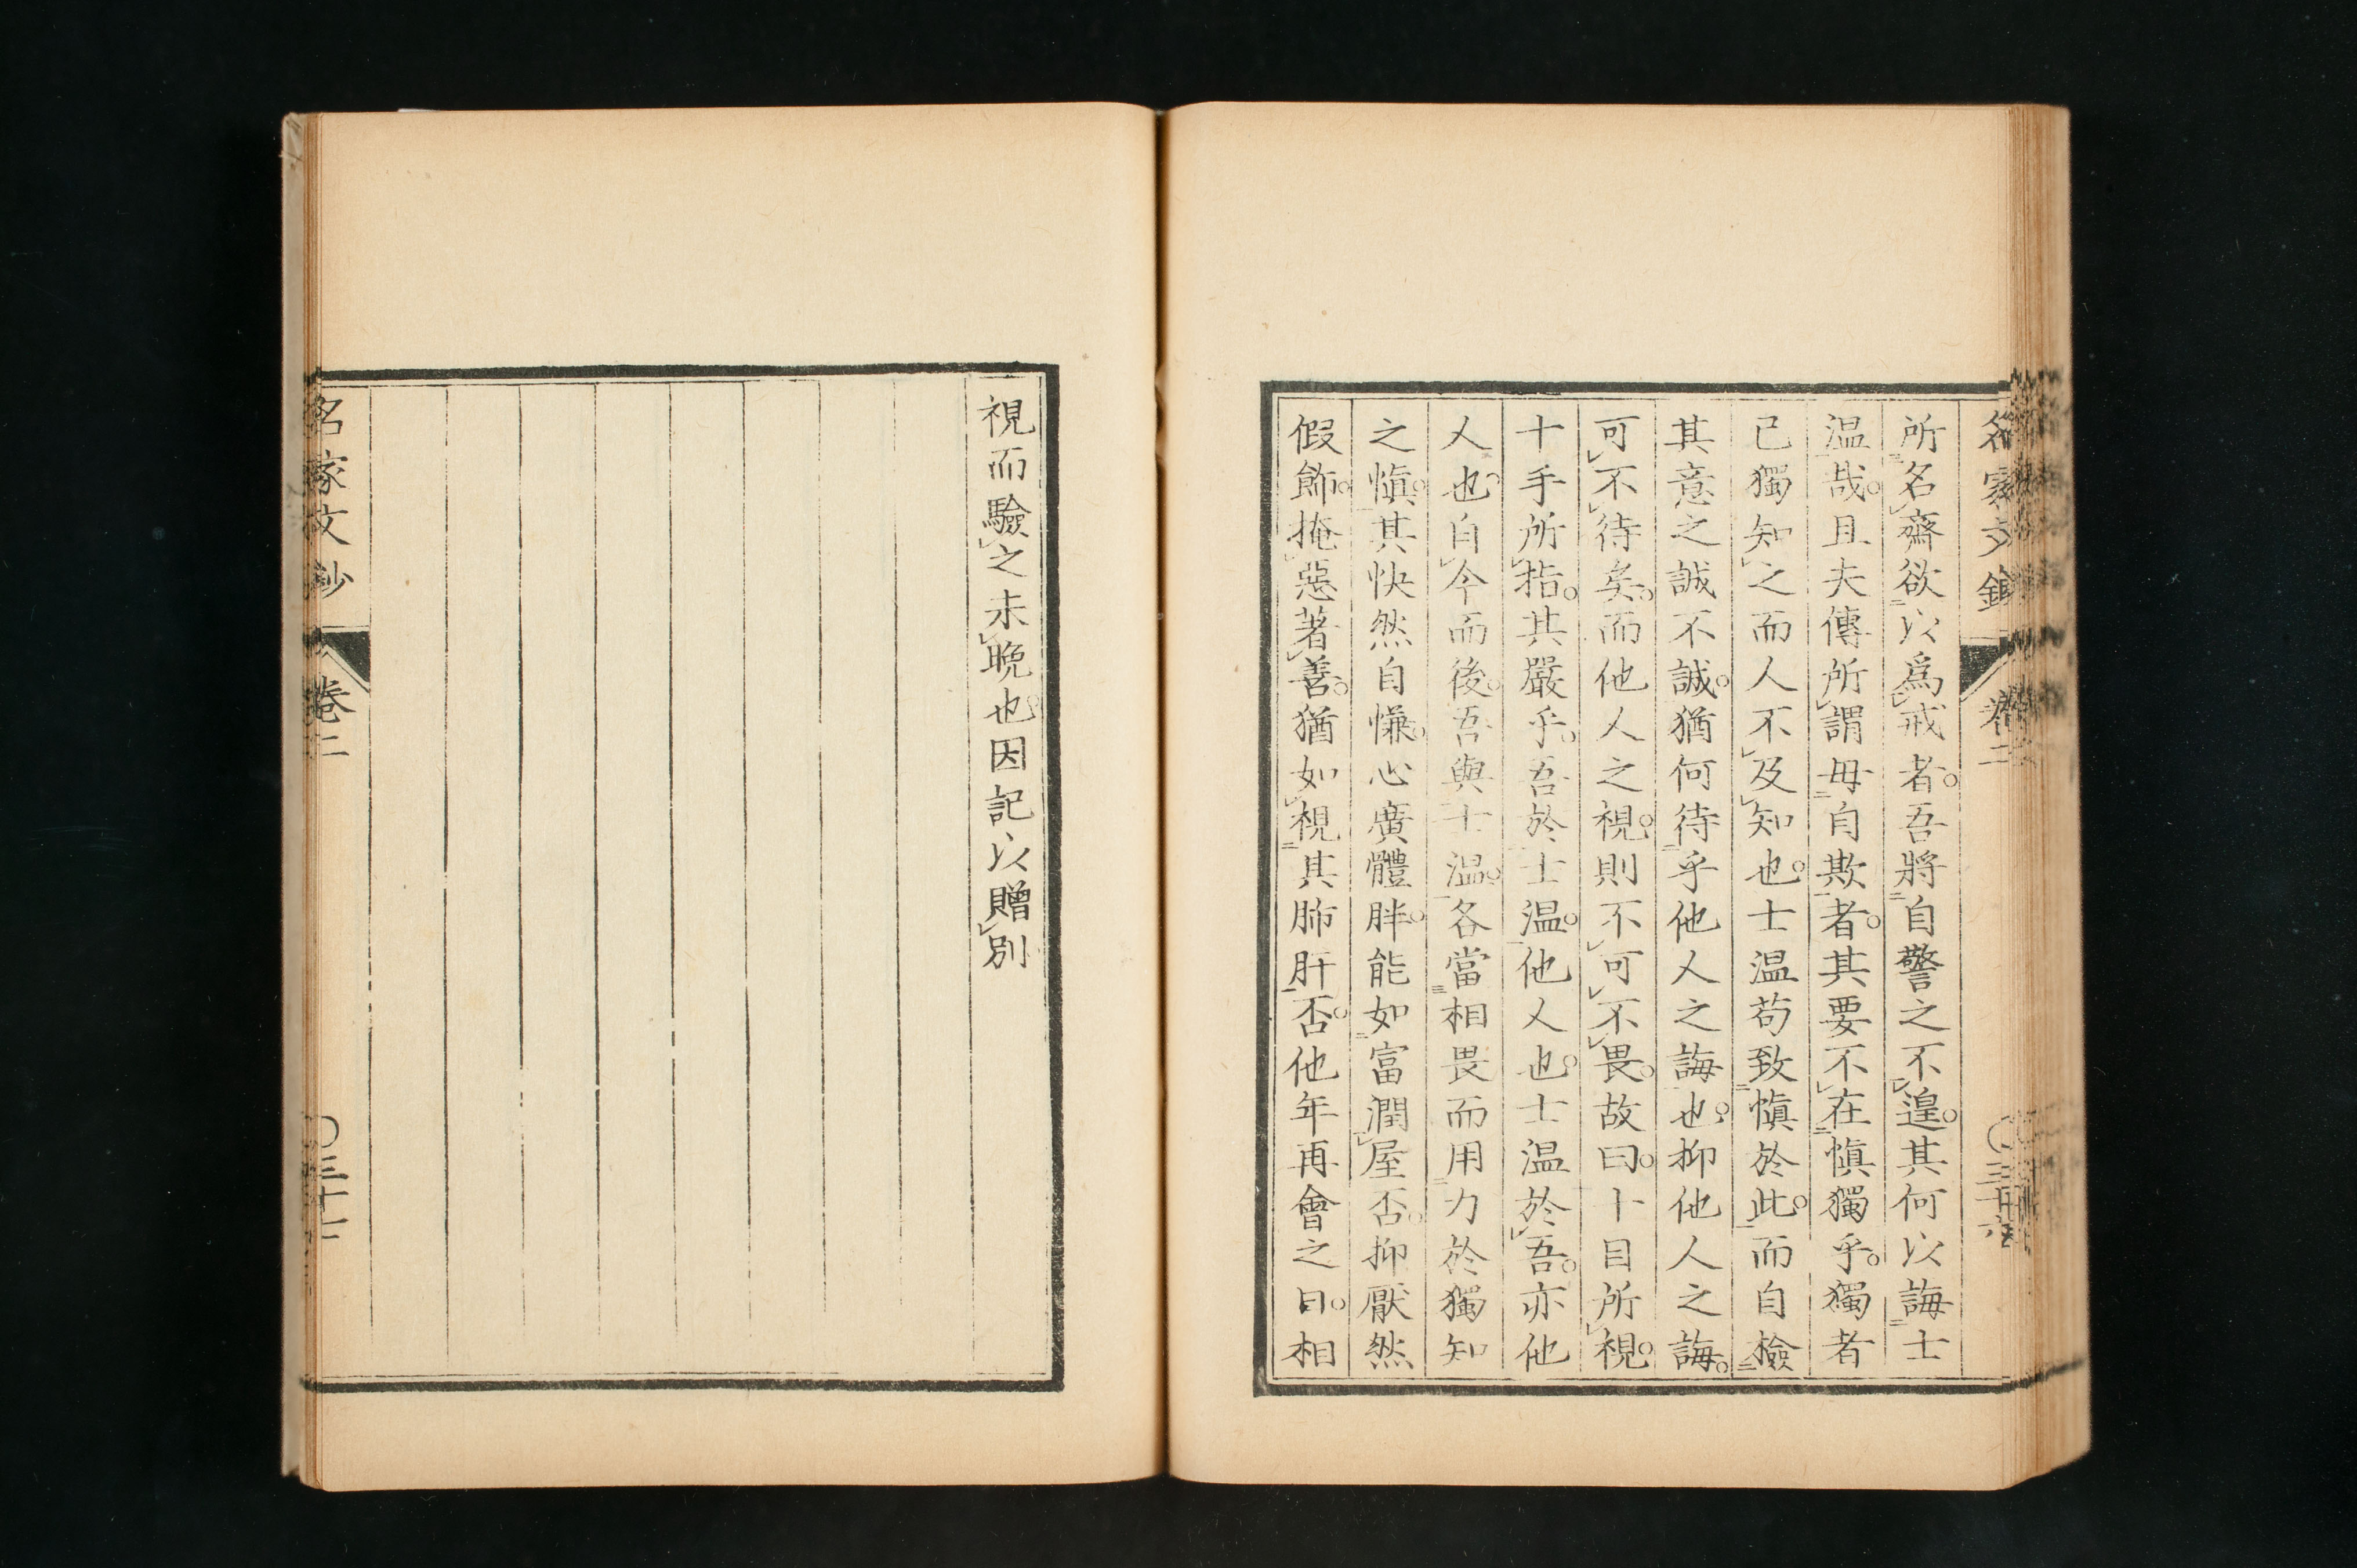 名家文鈔 卷二 〇三十六
所名齋欲以爲戒者。吾將自警之不遑。其何以誨士
温哉。且夫傳所謂毋自欺者。其要不在愼獨乎。獨者
已獨知之而人不及知也。士温苟致愼於此。而自檢
其意之誠不誠。猶何待乎他人之誨也。抑他人之誨。
可不待矣。而他人之視。則不可不畏。故曰。十目所視。
十手所指。其嚴乎。吾於士温。他人也。士温於吾。亦他
人也。自今而後。吾與士温。各當相畏而用力於獨知
之愼。其快然自慊。心廣體胖。能如富潤屋否。抑厭然
假飾。掩惡著善。猶如視其肺肝否。他年再會之日。相
視而驗之未晩也。因記以贈別
名家文鈔 卷二 〇三十七